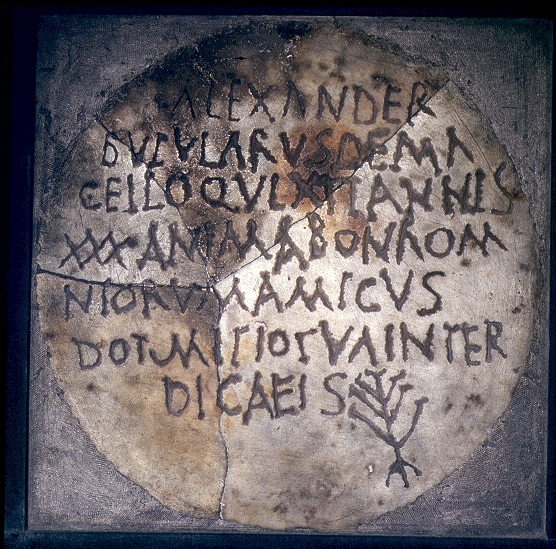 ALEXANDER
BVCVLARVS DE MA
CELLO Q VIXIT ANNIS
XXX ANIMA BONA OM
NIORVM AMICVS
DORMITIO TVA INTER
DICAEIS